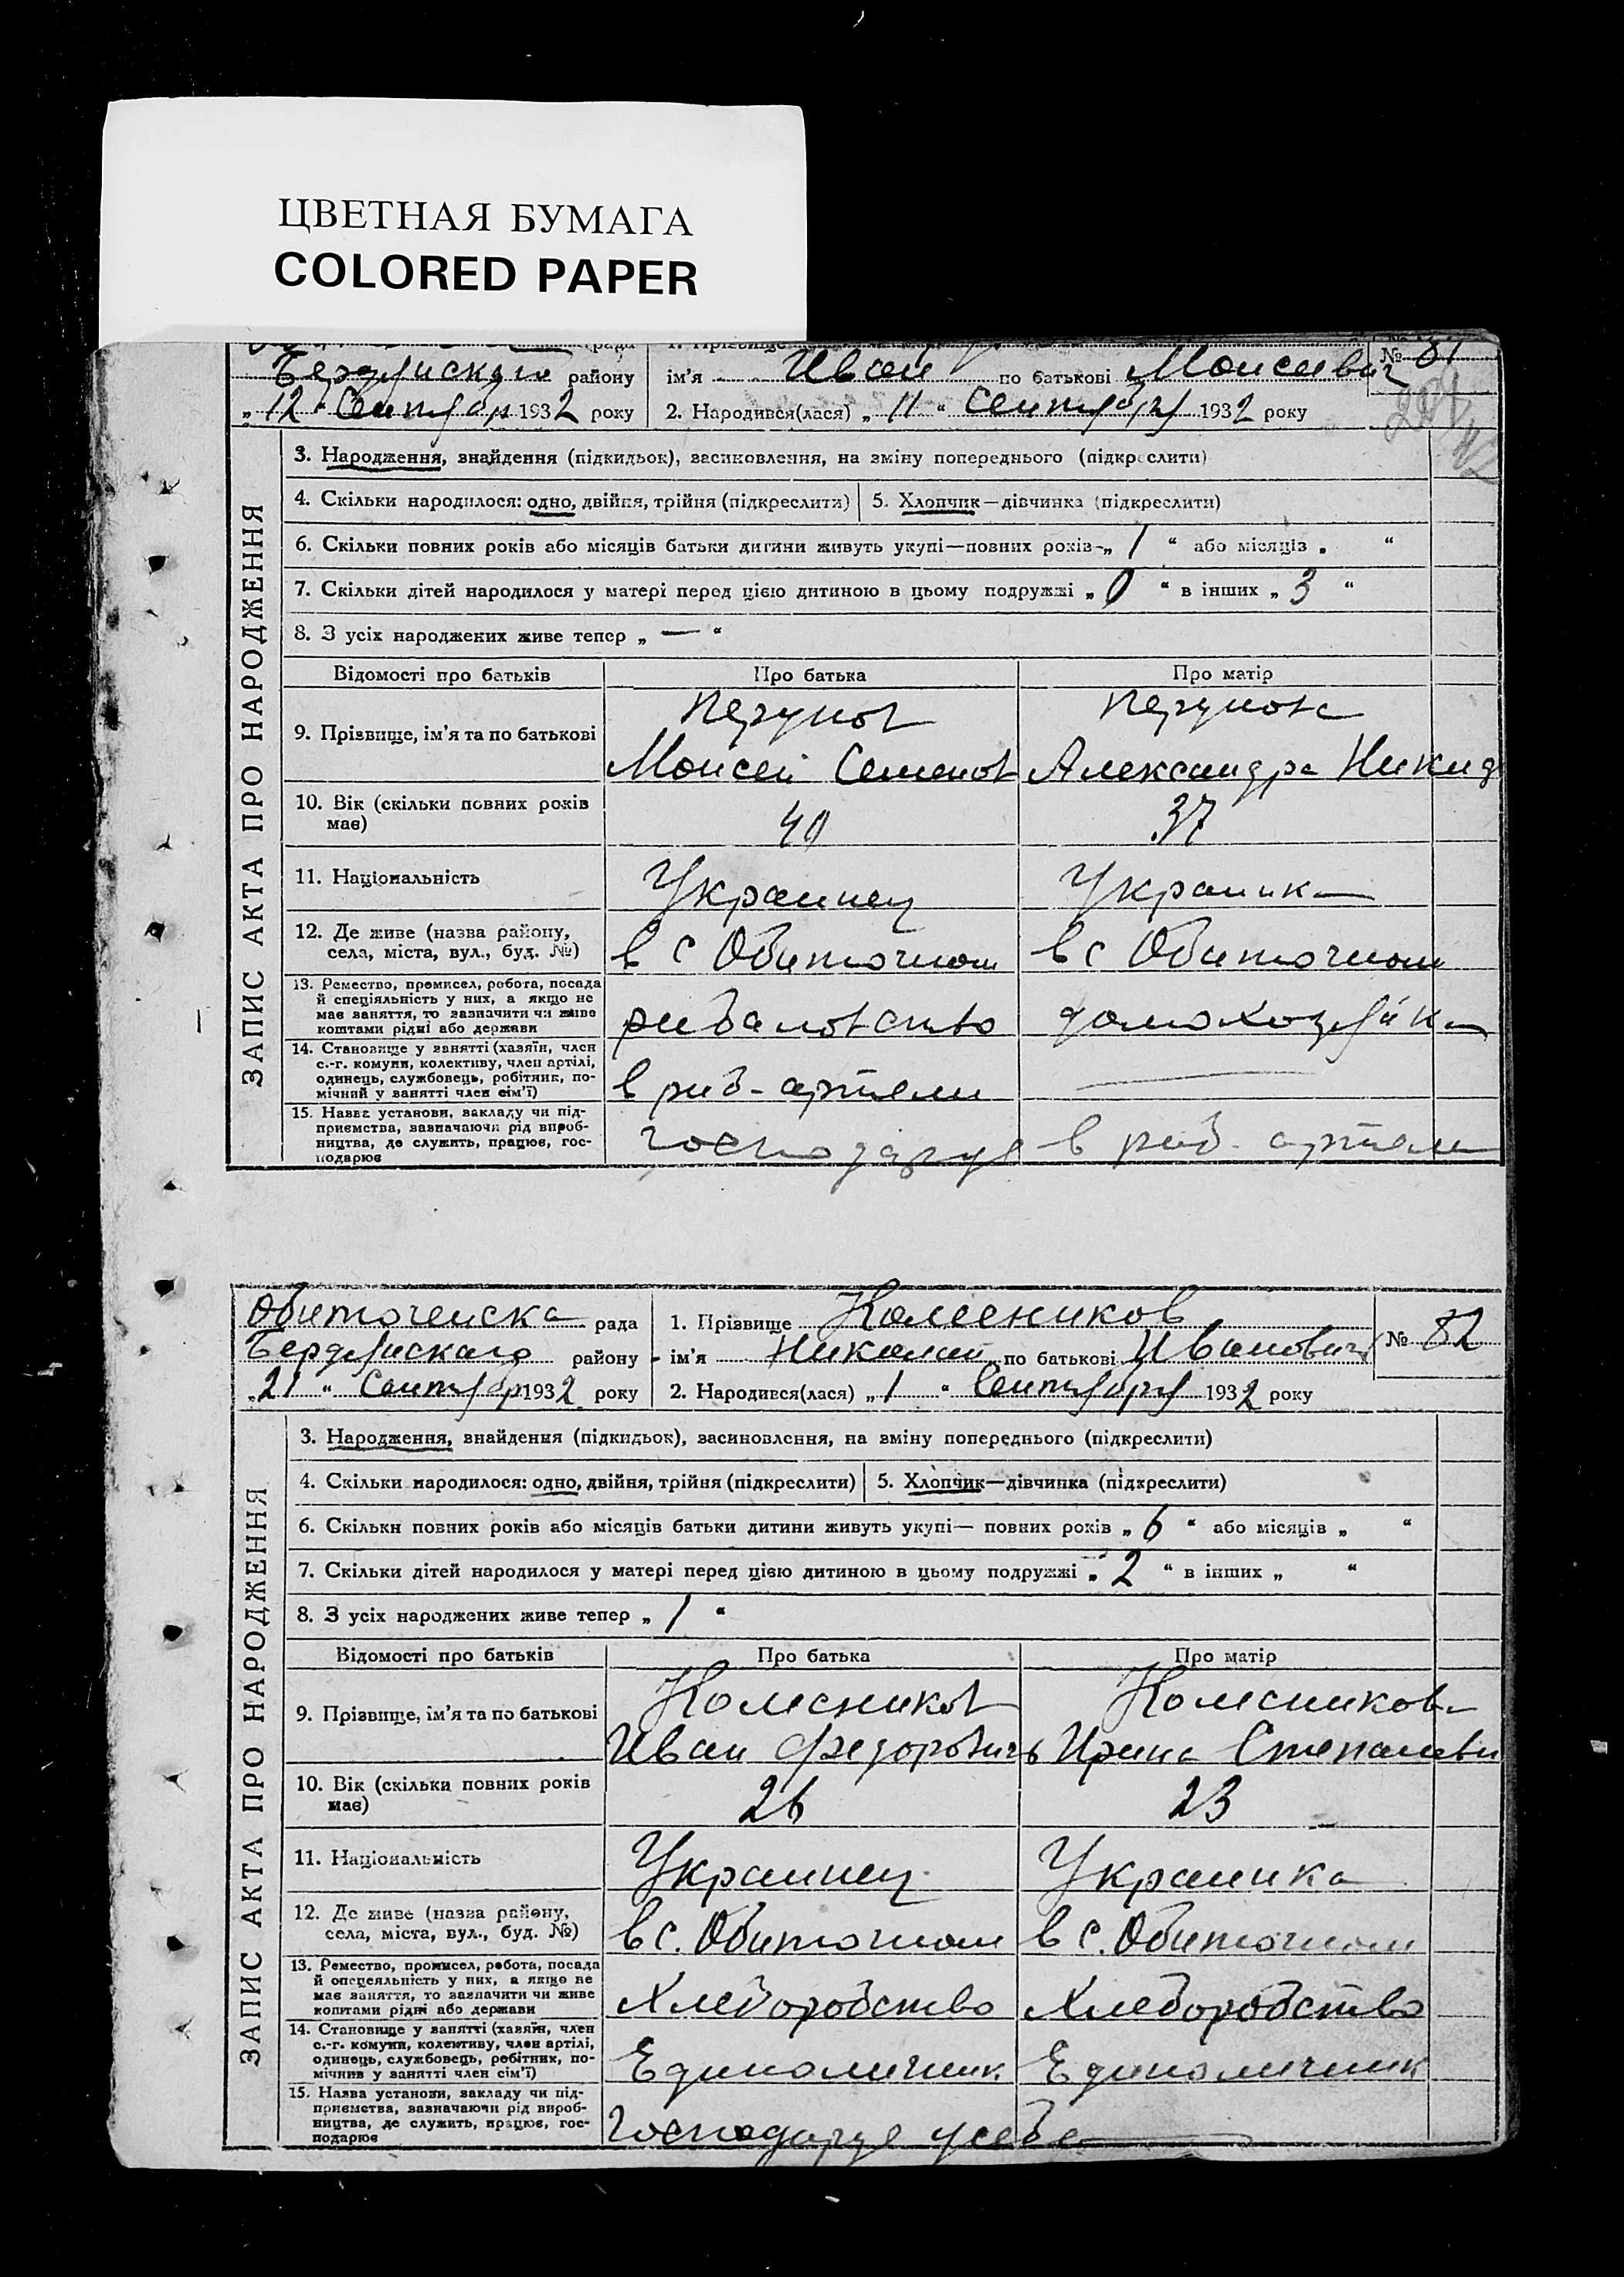 ЦВЕТНАЯ БУМАГА
COLORED PAPER
рада 1. Прізвище
Бердянского району ім'я Иван по батькові Моисеевич № 81
„ 12 “ Сентября 1932 року 2. Народився(лася) „ 11 “ Сентября 1932 року
ЗАПИС АКТА ПРО НАРОДЖЕННЯ
3. Народження, знайдення (підкидьок), засиновлення, на зміну попереднього (підкреслити)
4. Скільки народилося: одно, двійня, трійня (підкреслити) 5. Хлопчик—дівчинка (підкреслити)
6. Скільки повних років або місяців батьки дитини живуть укупі—повних років „ 1 “ або місяців „ “
7. Скільки дітей народилося у матері перед цією дитиною в цьому подружжі „ 0 “ в інших „ 3 “
8. З усіх народжених живе тепер „ — “
Відомості про батьків Про батька Про матір
9. Прізвище, ім'я та по батькові
Моисей Семенов Александра Никид
10. Вік (скільки повних років має) 40 37
11. Національність Украинец Украинка
12. Де живе (назва району, села, міста, вул., буд. №) в с Обиточном в с Обиточном
13. Ремество, промисел, робота, посада
й спеціяльність у них, а якщо не
має заняття, то зазначити чи живе
коштами рідні або держави рибаловство домохозяйка
14. Становище у занятті (хазяїн, член
с.-г. комуни, колективу, член артілі,
одинець, службовець, робітник, по-
мічний у занятті член сім'ї) в риб-артели —
15. Назва установи, закладу чи під-
приємства, зазначаючи рід вироб-
ництва, де служить, працює, гос-
подарює господарує в риб. артели
Обиточенска рада 1. Прізвище Колесников № 82
Бердянского району ім'я Николай по батькові Иванович
„ 21 “ Сентября 1932 року 2. Народився(лася) „ 1 “ Сентября 1932 року
ЗАПИС АКТА ПРО НАРОДЖЕННЯ
3. Народження, знайдення (підкидьок), засиновлення, на зміну попереднього (підкреслити)
4. Скільки народилося: одно, двійня, трійня (підкреслити) 5. Хлопчик—дівчинка (підкреслити)
6. Скільки повних років або місяців батьки дитини живуть укупі— повних років „ 6 “ або місяців „ “
7. Скільки дітей народилося у матері перед цією дитиною в цьому подружжі „ 2 “ в інших „ “
8. З усіх народжених живе тепер „ 1 “
Відомості про батьків Про батька Про матір
Колесников Колесникова
9. Прізвище, ім'я та по батькові
Иван Федорович Ирина Степанови
10. Вік (скільки повних років має) 26 23
11. Національність Украинец Украинка
12. Де живе (назва району, села, міста, вул., буд. №) в с. Обиточном в с. Обиточном
13. Ремество, промисел, робота, посада
й спецеяльність у них, а якщо не
має заняття, то зазначити чи живе
коштами рідні або держави Хлеборобство Хлеборобство
14. Становище у занятті (хазяїн, член
с.-г. комуни, колективу, член артілі,
одинець, службовець, робітник, по-
мічник у занятті член сім'ї) Единоличник Единоличник
15. Назва установи, закладу чи під-
приємства, зазначаючи рід вироб-
ництва, де служить, працює, гос-
подарює Господарує у себе